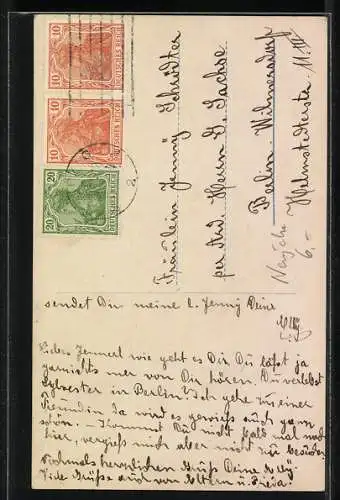 10 10
DEUTSCHES REICH
10 10
DEUTSCHES REICH
20 20
DEUTSCHES REICH
Fräulein Jenny Schröter
per Adr. Herrn G. Sachse
Berlin-Wilmersdorf
Helmstedterstr. 11 III
6,-
sendet Dir meine l. Jenny Deine
Liebes Jennerl wie geht es Dir, Du läßt ja
garnichts mer von Dir hören. Du verlebst
Sylvester in Berlin? Ich gehe zu einer
Freundin. Ja wird es gewiß auch ganz
schön. – Kommst Du nicht bald mal nach
hier, vergiß mich aber nicht zu
Nochmals herzlichen Gruß Deine
Viele Grüße auch von Eltern u.